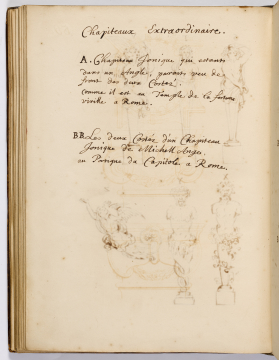 Chapiteaux Extraordinaire.
A. Chapiteau Jonique qui estants
dans un Angle, paroist peu de
front des deux Costez.
comme il est au Temple de la fortune
virile a Rome.
BB. Les deux Costez d'un Chapiteau
Jonique de Michell Ange.
au Portique du Capitole a Rome.